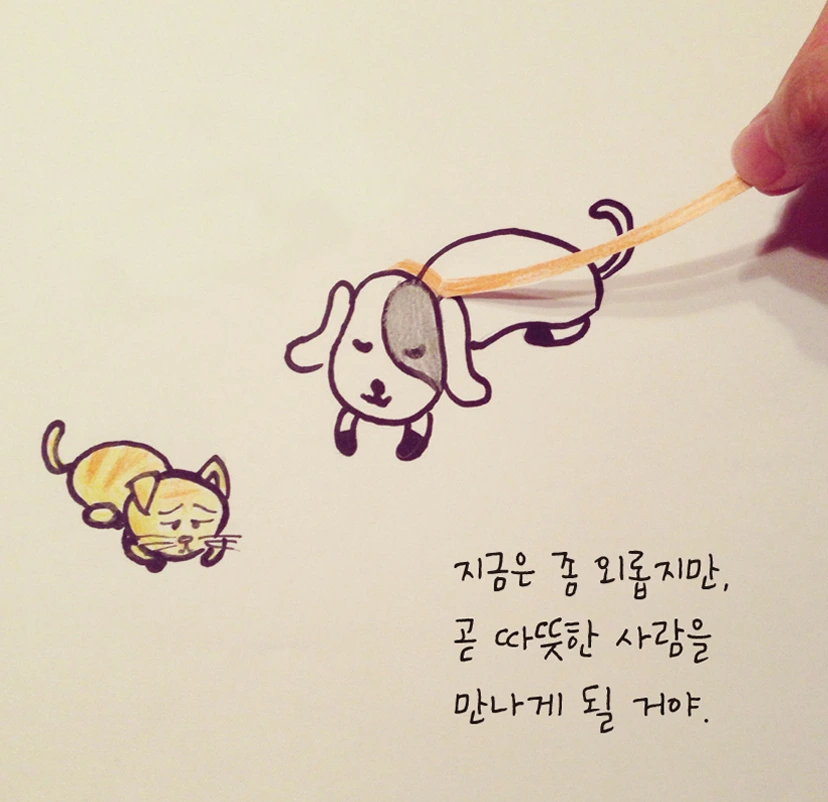 지금은 좀 외롭지만,
곧 따뜻한 사람을
만나게 될 거야.